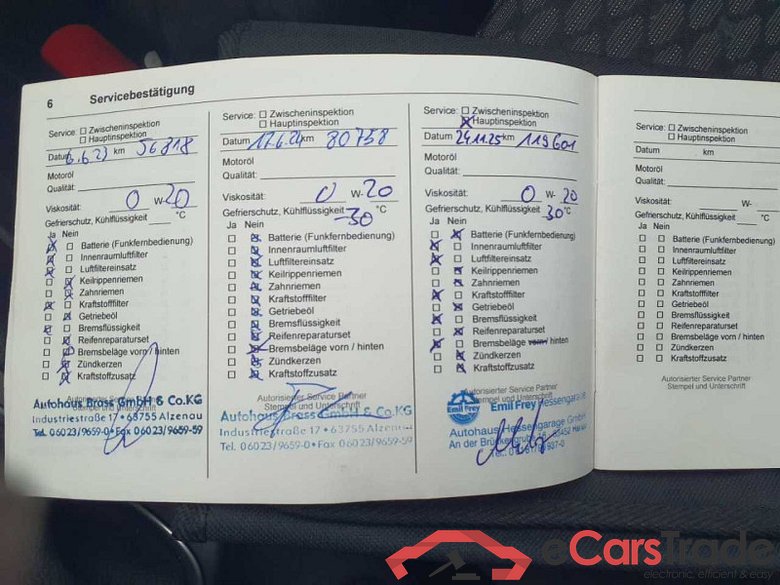 6 Servicebestätigung
Service: Zwischeninspektion
Hauptinspektion
Datum 6.6.23 km 56818
Motoröl
Qualität:
Viskosität: 0 W-20
Gefrierschutz, Kühlflüssigkeit °C
Ja Nein
Batterie (Funkfernbedienung)
Innenraumluftfilter
Luftfiltereinsatz
Keilrippenriemen
Zahnriemen
Kraftstofffilter
Getriebeöl
Bremsflüssigkeit
Reifenreparaturset
Bremsbeläge vorn / hinten
Zündkerzen
Kraftstoffzusatz
Autorisierter Service Partner
Stempel und Unterschrift
Autohaus Brass GmbH & Co.KG
Industriestraße 17 • 63755 Alzenau
Tel. 06023/9659-0 • Fax 06023/9659-59
Service: Zwischeninspektion
Hauptinspektion
Datum 17.6.24 km 80758
Motoröl
Qualität:
Viskosität: 0 W-20
Gefrierschutz, Kühlflüssigkeit -30 °C
Ja Nein
Batterie (Funkfernbedienung)
Innenraumluftfilter
Luftfiltereinsatz
Keilrippenriemen
Zahnriemen
Kraftstofffilter
Getriebeöl
Bremsflüssigkeit
Reifenreparaturset
Bremsbeläge vorn / hinten
Zündkerzen
Kraftstoffzusatz
Autorisierter Service Partner
Stempel und Unterschrift
Autohaus Brass GmbH & Co.KG
Industriestraße 17 • 63755 Alzenau
Tel. 06023/9659-0 • Fax 06023/9659-59
Service: Zwischeninspektion
Hauptinspektion
Datum 24.11.25 km 119601
Motoröl
Qualität:
Viskosität: 0 W-20
Gefrierschutz, Kühlflüssigkeit 30 °C
Ja Nein
Batterie (Funkfernbedienung)
Innenraumluftfilter
Luftfiltereinsatz
Keilrippenriemen
Zahnriemen
Kraftstofffilter
Getriebeöl
Bremsflüssigkeit
Reifenreparaturset
Bremsbeläge vorn / hinten
Zündkerzen
Kraftstoffzusatz
Autorisierter Service Partner
Stempel und Unterschrift
Emil Frey Emil Frey Hessengarage
Autohaus Hessengarage GmbH
An der
Service: Zwischeninspektion
Hauptinspektion
Datum km
Motoröl
Qualität:
Viskosität: W-
Gefrierschutz, Kühlflüssigkeit °C
Ja Nein
Batterie (Funkfernbedienung)
Innenraumluftfilter
Luftfiltereinsatz
Keilrippenriemen
Zahnriemen
Kraftstofffilter
Getriebeöl
Bremsflüssigkeit
Reifenreparaturset
Bremsbeläge vorn / hinten
Zündkerzen
Kraftstoffzusatz
Autorisierter Service Partner
Stempel und Unterschrift
eCarsTrade
electronic, efficient & easy